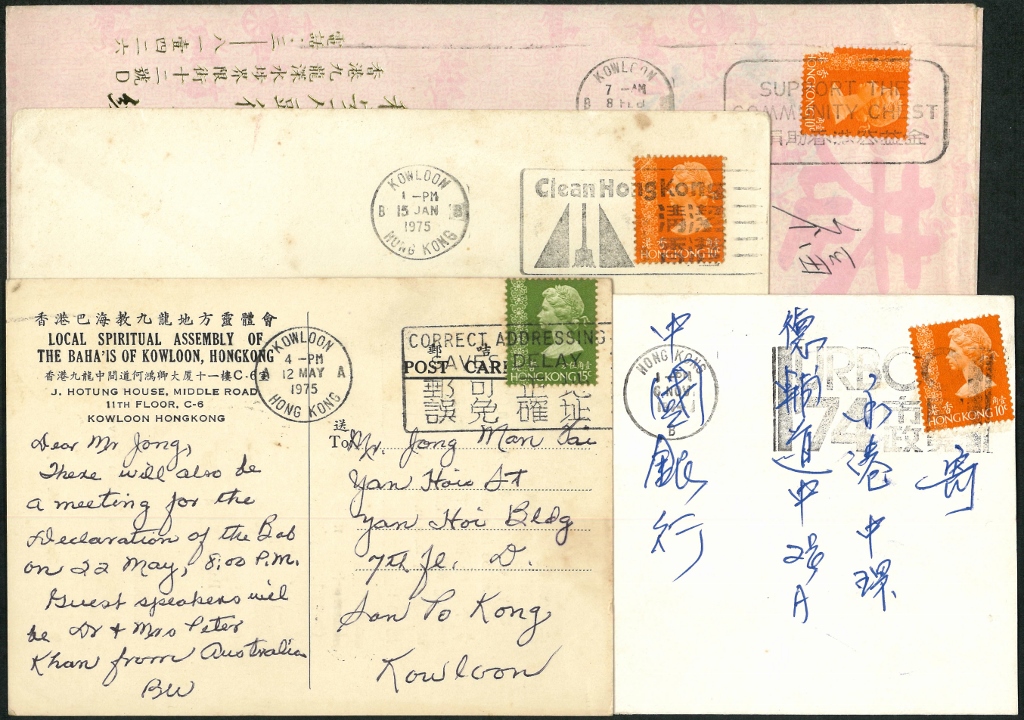 電話:三—八一壹四二六
香港九龍深水埗界限街十二號D
KOWLOON
7 -AM
8 FEB
B
SUPPORT THE
COMMUNITY CHEST
HONGKONG 10¢
KOWLOON
1 -PM
B 15 JAN B
1975
HONG KONG
Clean Hong Kong
HONGKONG 10¢
香港巴海教九龍地方靈體會
LOCAL SPIRITUAL ASSEMBLY OF
THE BAHA'IS OF KOWLOON, HONGKONG
香港九龍中間道何鴻卿大厦十一樓C-6室
J. HOTUNG HOUSE, MIDDLE ROAD
11TH FLOOR, C-6
KOWLOON HONGKONG
KOWLOON
4 -PM
A 12 MAY A
1975
HONG KONG
CORRECT ADDRESSING
SAVES DELAY
HONGKONG 15¢
POST CARD
送
To
Dear Mr Jong,
There will also be
a meeting for the
Declaration of the Bab
on 22 May, 8:00 P.M.
Guest speakers will
be Dr & Mrs Peter
Khan from Australia
BW
Mr. Jong Man Cai
Yan Hoi St
Yan Hoi Bldg
7th fl. D.
San Po Kong
Kowloon
HONG KONG
B
URBCO
74市政
香港
HONGKONG 10¢
寄
香港中環
德輔道中2號A
中國銀行